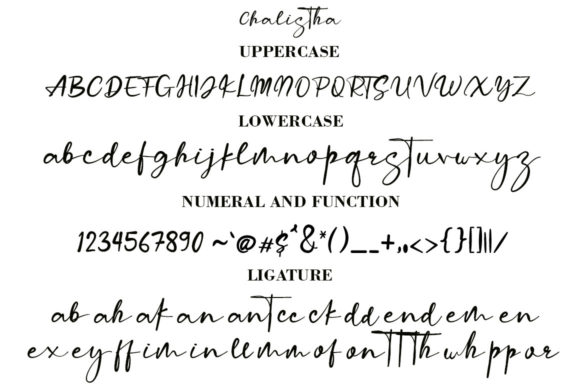 Chalistha
UPPERCASE
ABCDEFGHIJKLMNOPQRSTUVWXYZ
LOWERCASE
abcdefghijklmnopqrstuvwxyz
NUMERAL AND FUNCTION
1234567890 ~`@#$^&*()__+,.<>{}[]||/
LIGATURE
ab ah ak an ant cc ck dd end em en
ex ey ff im in ll mm of on tt th wh pp or